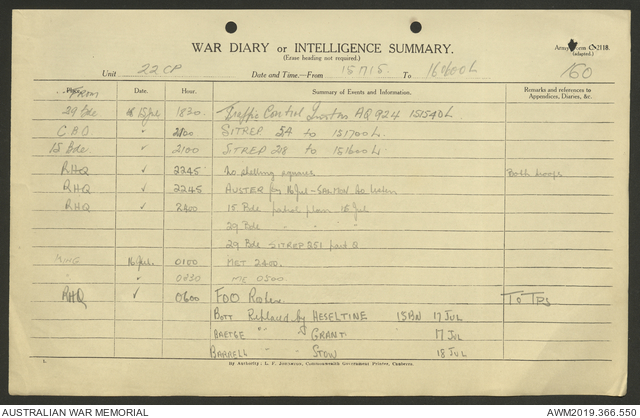 WAR DIARY or INTELLIGENCE SUMMARY.
(Erase heading not required.)
Army Form C. 2118.
(adapted.)
Unit 22 CP Date and Time—From 151715 To 160600L 160
Place. Date. Hour. Summary of Events and Information. Remarks and references to Appendices, Diaries, &c.
FROM
29 Bde 15 Jul 1830 Traffic Control AQ 924 151540L
C.B.O ✓ 2100 SITREP 2A to 151700L
15 Bde ✓ 2100 SITREP 218 to 151600L
RHQ ✓ 2245 No shelling Both troops
RHQ ✓ 2245 AUSTER for 16 Jul - SALMON to listen
RHQ ✓ 2400 15 Bde patrol plan 16 Jul
29 Bde " " " "
29 Bde SITREP 251 part 2
16 Jul. 0100 MET 2400.
" 0530 ME 0500
RHQ ✓ 0600 FOO To TPS
BOTT Replaced by HESELTINE 15BN 17 JUL
BAETGE " " GRANT 17 Jul
BARRELL " " STOW 18 Jul
1.
By Authority: L. F. Johnston, Commonwealth Government Printer, Canberra.
AUSTRALIAN WAR MEMORIAL
AWM2019.366.550